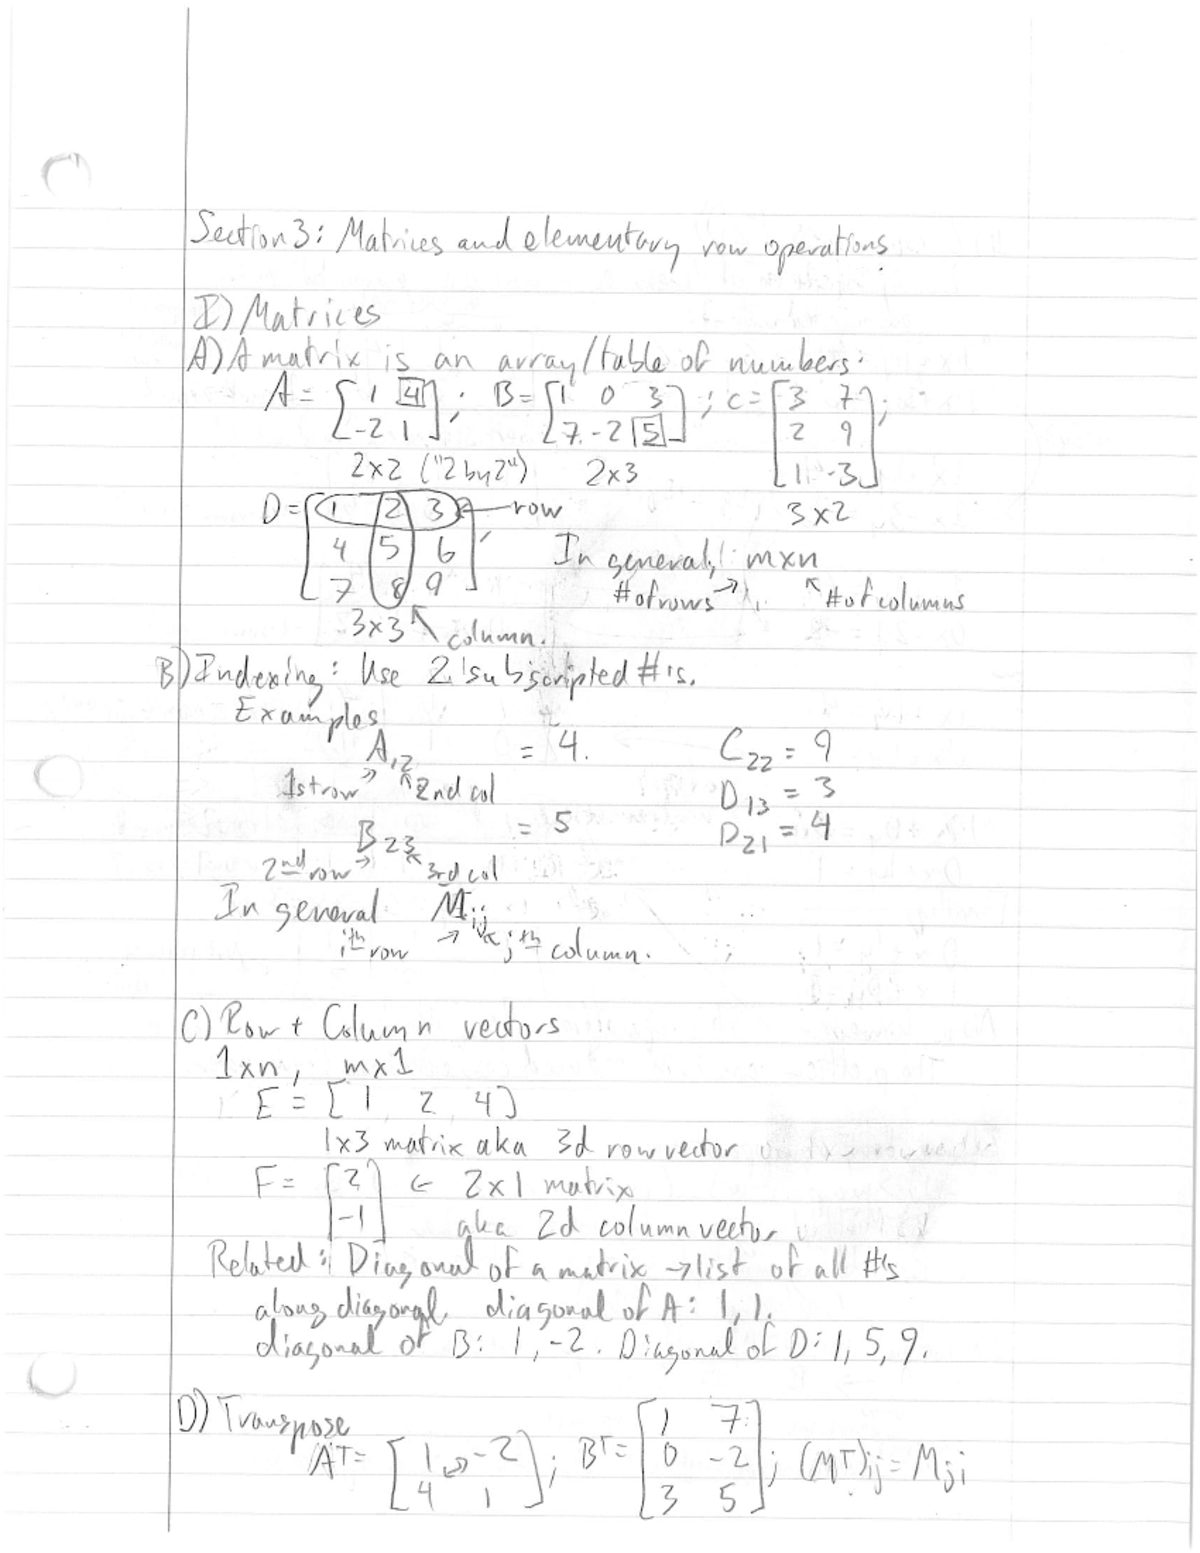 Section 3: Matrices and elementary row operations
I) Matrices
A) A matrix is an array/table of numbers:
A = [1 4; -2 1]; B = [1 0 3; 7 -2 5]; C = [3 7; 2 9; 1 -3];
2x2 ("2 by 2") 2x3 3x2
D = [1 2 3; 4 5 6; 7 8 9] ← row
In general, m x n
# of rows ↗ ↖ # of columns
3x3 ↖ column.
B) Indexing: Use 2 subscripted #'s.
Examples
A12 = 4. C22 = 9
1st row ↗ ↖ 2nd col D13 = 3
B23 = 5 D21 = 4
2nd row ↗ ↖ 3rd col
In general Mij
ith row → ↖ jth column.
C) Row + Column vectors
1xn, mx1
E = [1 2 4]
1x3 matrix aka 3d row vector
F = [2; -1] ← 2x1 matrix
aka 2d column vector
Related: Diagonal of a matrix → list of all #'s
along diagonal. diagonal of A: 1, 1.
diagonal of B: 1, -2. Diagonal of D: 1, 5, 9.
D) Transpose
AT = [1 -2; 4 1]; BT = [1 7; 0 -2; 3 5]; (MT)ij = Mji